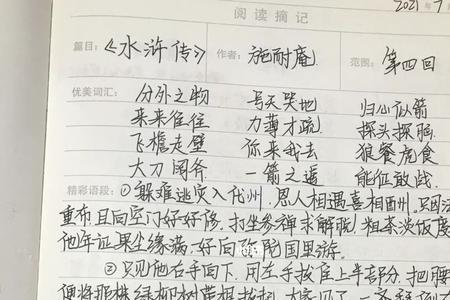 2021年7
阅读摘记
篇目：《水浒传》 作者：施耐庵 范围：第四回
优美词汇：分外之物 号天哭地 归心似箭
来来往往 力薄才疏 探头探脑
飞檐走壁 你来我去 狼餐虎食
大刀阔斧 一箭之遥 能征敢战
精彩语段：①躲难逃灾入代州，恩人相遇喜相酬。只因法
重布且向空门好好修，打坐参禅求解脱，粗茶淡饭度
他年证果尘缘满，好向弥陀国里游。
②只见他右手向下，用左手拔住上半部分，把腰
便将那株绿杨树带根拔起